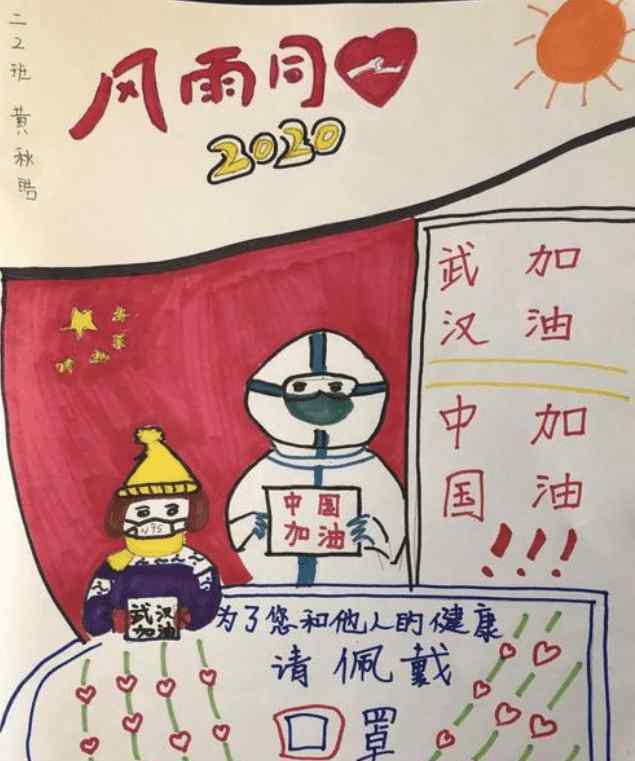 二2班 黄秋皓
风雨同
2020
武汉 加油
中国 加油
!!!
中国
加油
N95
武汉
加油
为了您和他人的健康
请佩戴
口罩